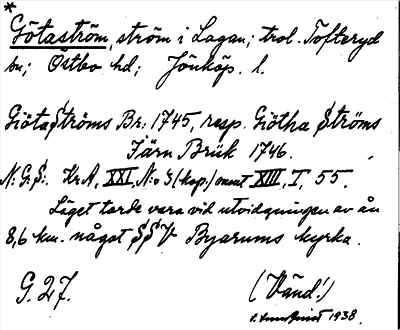 *
Götaström, ström i Lagan; trol. Tofteryd
sn; Östbo hd; Jönköp. l.
Giöta Ströms Br: 1745, resp. Giötha Ströms
Järn Brük 1746.
N: G: S: Kr. A, XXI, N:o 3 (kop.) samt XIII, I, 55.
Läget torde vara vid utvidgningen av ån
8,6 km. något SSV Byarums kyrka.
G. 27.
(Vänd!)
1938.